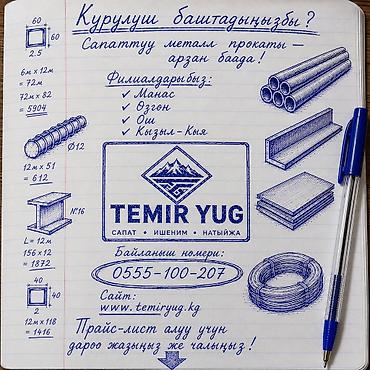 Курулуш баштадыңызбы?
Сапаттуу металл прокаты –
арзан баада!
Филиалдарыбыз:
✓ Манас
✓ Өзгөн
✓ Ош
✓ Кызыл-Кыя
60
60
2.5
6м x 12м
= 72м
72м x 82
= 5904
Ø12
12м x 51
= 612
№16
L = 12м
156 x 12
= 1872
40
40
2
12м x 118
= 1416
TEMIR YUG
САПАТ • ИШЕНИМ • НАТЫЙЖА
Байланыш номери:
0555-100-207
Сайт:
www.temiryug.kg
Прайс-лист алуу үчүн
дароо жазыңыз же чалыңыз!